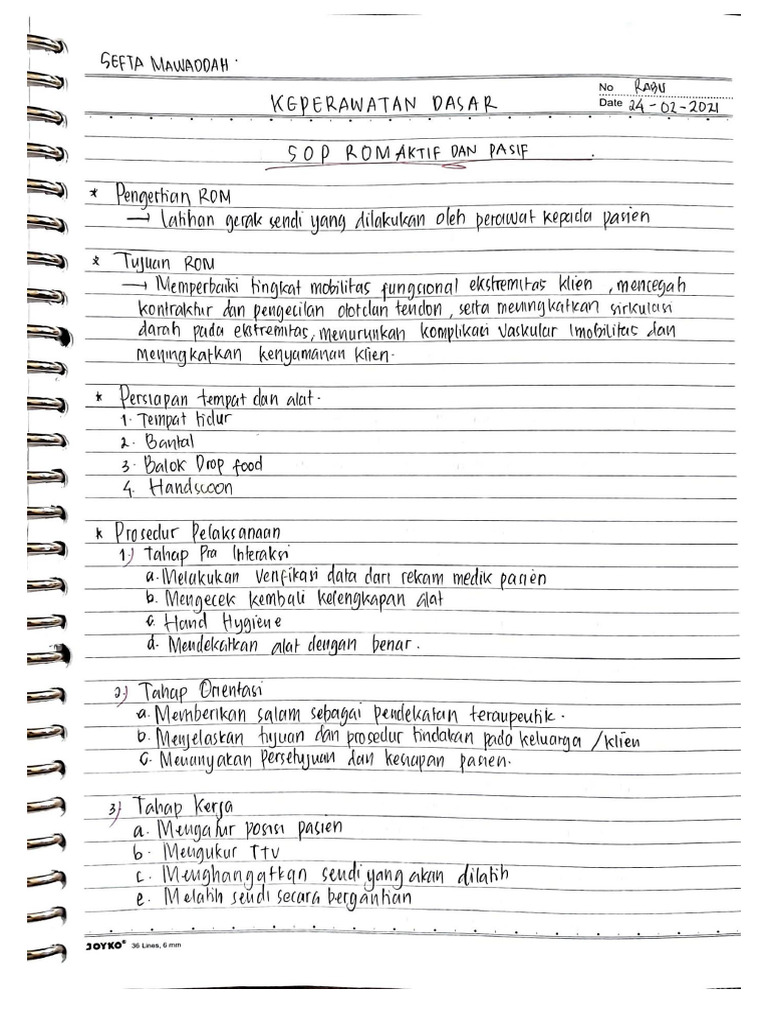 SEFTA MAWADDAH.
No RABU
KEPERAWATAN DASAR
Date 24-02-2021
SOP ROM AKTIF DAN PASIF
* Pengertian ROM
→ Latihan gerak sendi yang dilakukan oleh perawat kepada pasien
* Tujuan ROM
→ Memperbaiki tingkat mobilitas fungsional ekstremitas klien, mencegah
kontraktur dan pengecilan otot dan tendon, serta meningkatkan sirkulasi
darah pada ekstremitas, menurunkan komplikasi vaskular imobilitas dan
meningkatkan kenyamanan klien.
* Persiapan tempat dan alat.
1. Tempat tidur
2. Bantal
3. Balok Drop food
4. Handscoon
* Prosedur Pelaksanaan
1.) Tahap Pra Interaksi
a. Melakukan verifikasi data dari rekam medik pasien
b. Mengecek kembali kelengkapan alat
c. Hand Hygiene
d. Mendekatkan alat dengan benar.
2.) Tahap Orientasi
a. Memberikan salam sebagai pendekatan teraupeutik.
b. Menjelaskan tujuan dan prosedur tindakan pada keluarga /klien
c. Menanyakan Persetujuan dan kesiapan pasien.
3.) Tahap Kerja
a. Mengatur posisi pasien
b. Mengukur TTV
c. Menghangatkan sendi yang akan dilatih
e. Melatih sendi secara bergantian
JOYKO® 36 Lines, 6 mm